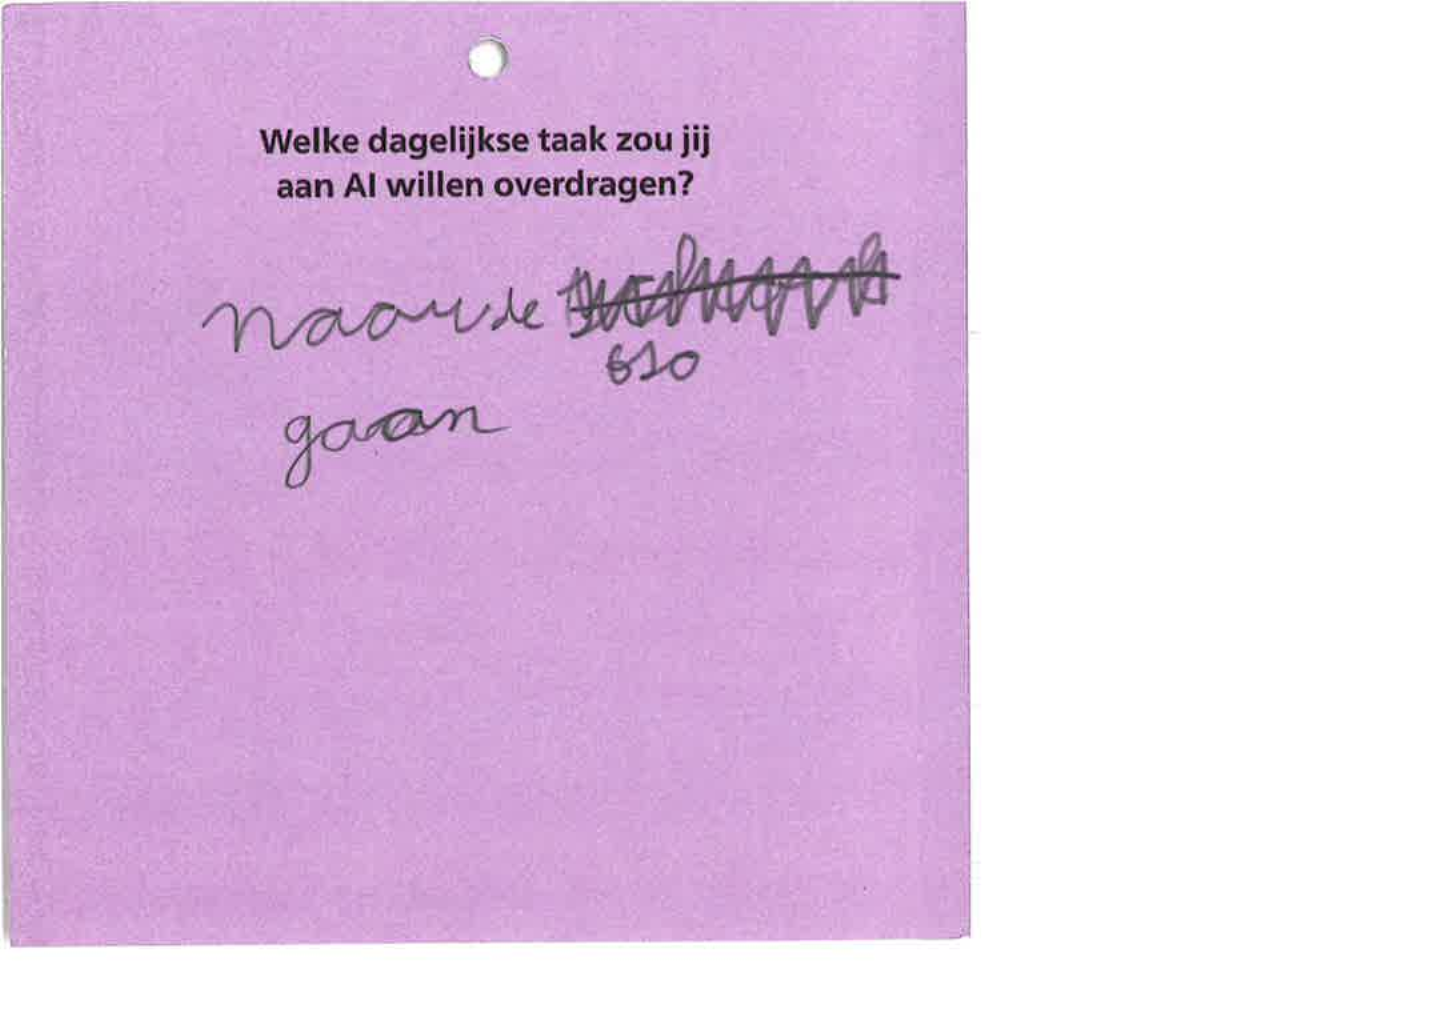 Welke dagelijkse taak zou jij
aan AI willen overdragen?
naar de
gaan